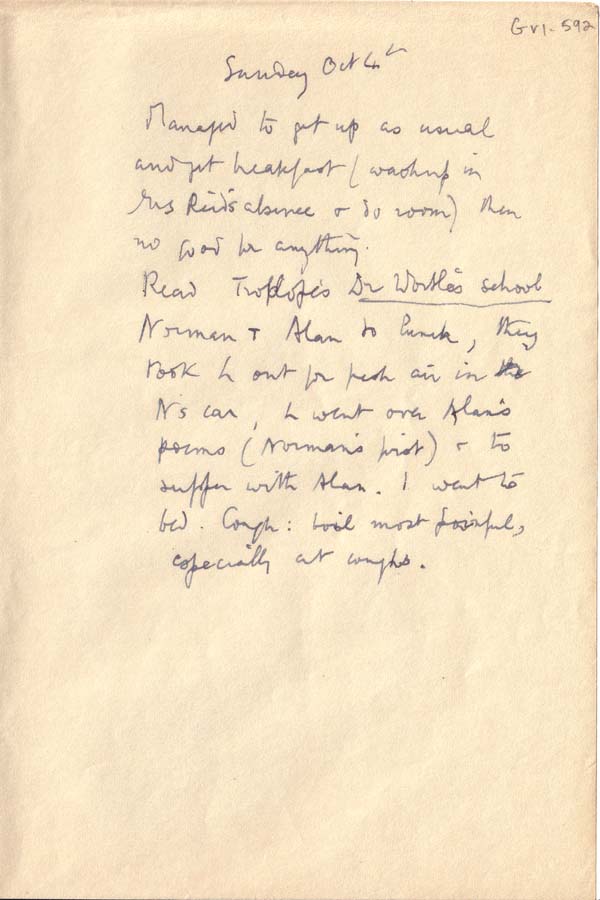 GVI-592
Sunday Oct 4th
Managed to get up as usual
and get breakfast (wash up in
Mrs Reid's absence + do room) then
no good for anything.
Read Trollope's Dr Wortle's school
Norman + Alan to lunch, they
took h out for fresh air in the
N's car, h went over Alan's
poems (Norman's first) + to
supper with Alan. I went to
bed. Cough: boil most painful,
especially at coughs.